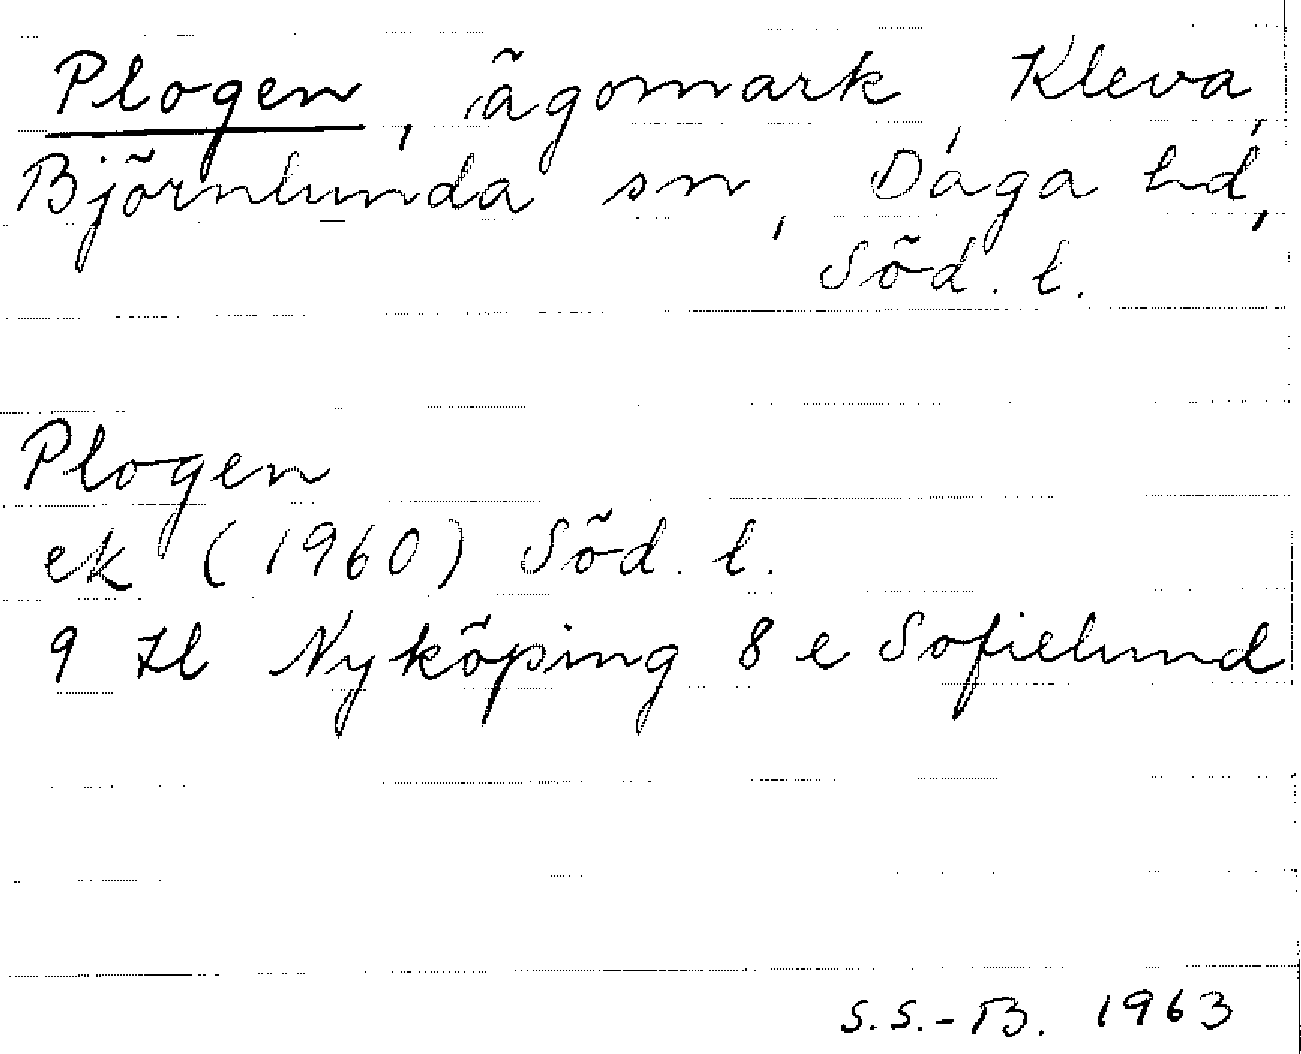 Plogen, ägomark, Kleva,
Björnlunda sn, Daga hd,
Söd. l.
Plogen
ek (1960) Söd. l.
9 Hl Nyköping 8 e Sofielund
S.S.-B. 1963